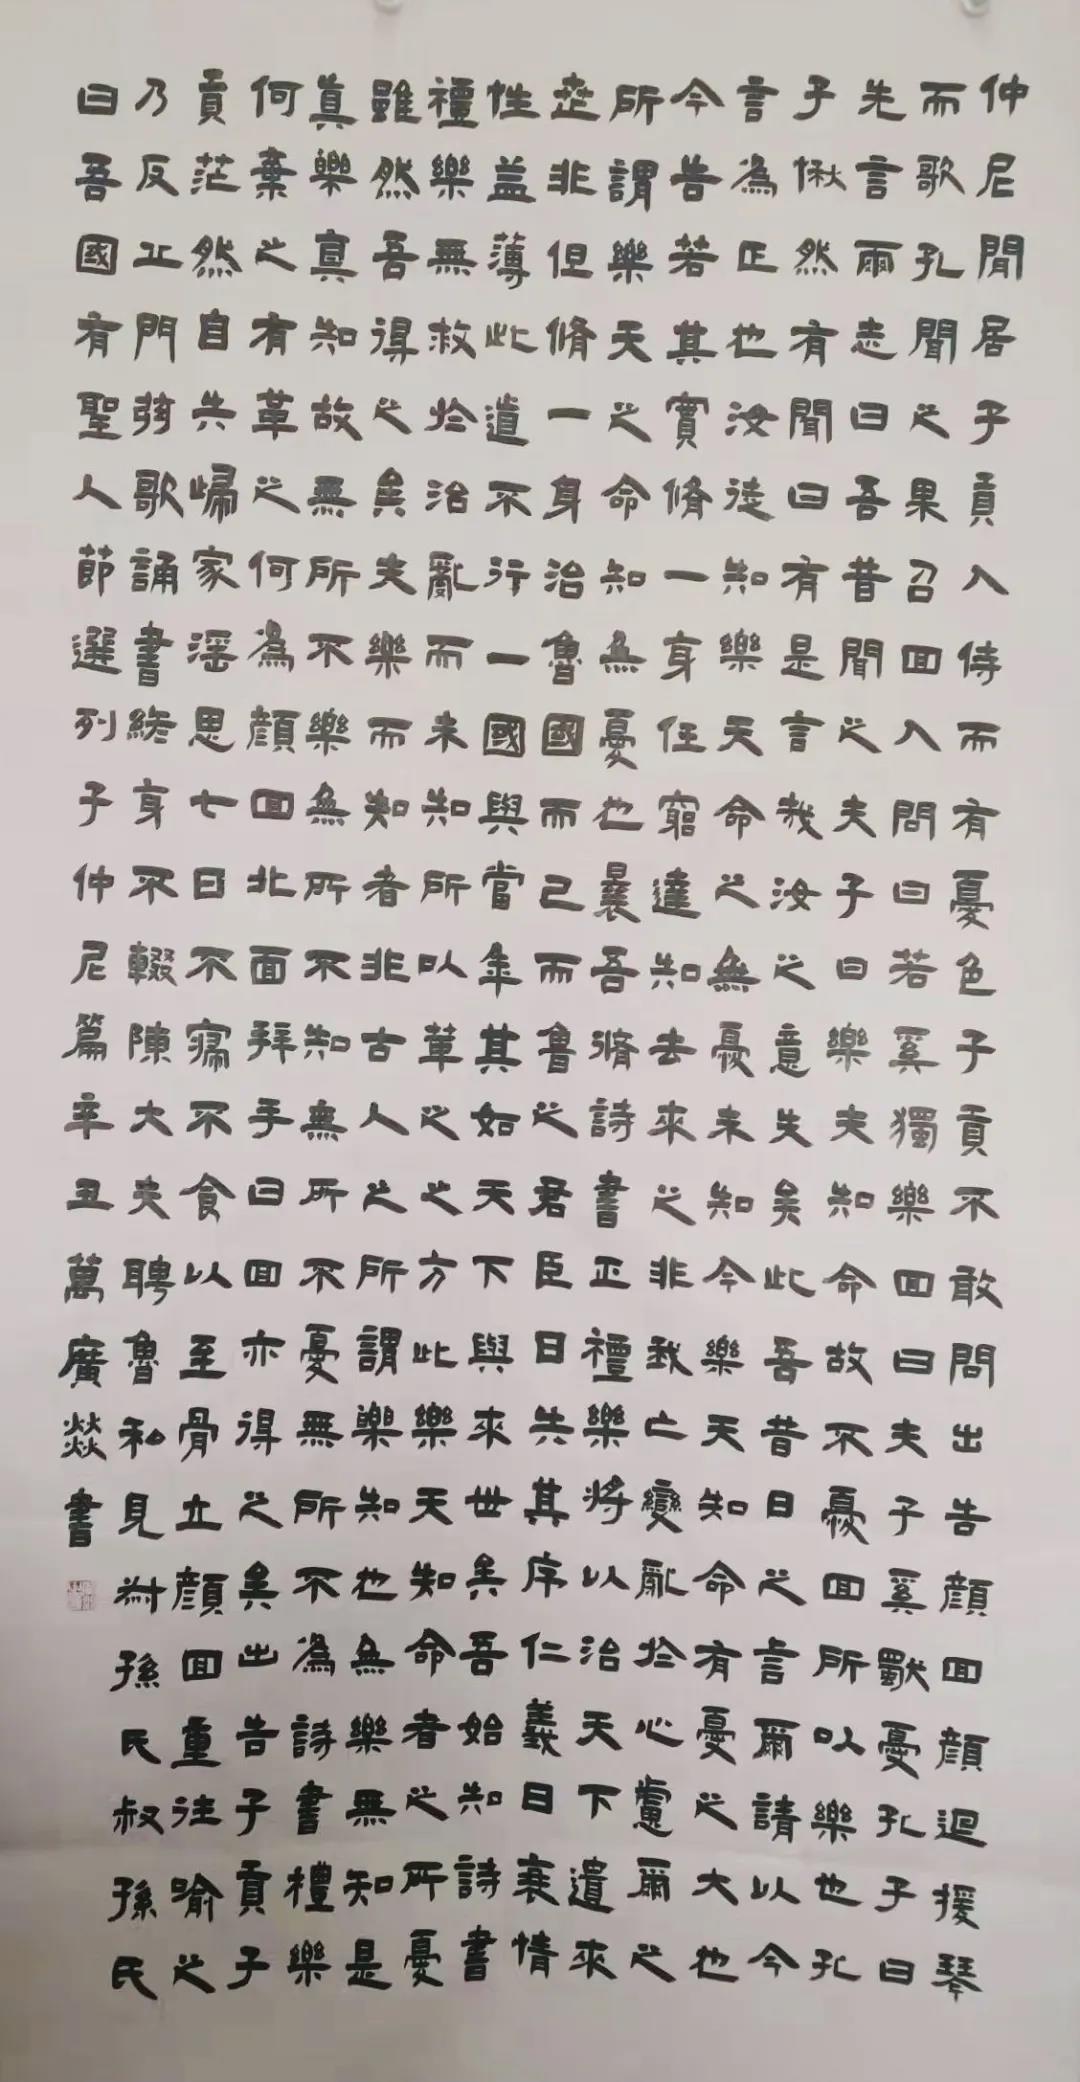 仲尼閒居子貢入侍而有憂色子貢不敢問出告顏回顏迴援琴
而歌孔聞之果召回入問曰若奚獨樂回曰夫子奚獨憂孔子曰
先言爾志曰吾昔聞之夫子曰樂夫知命故不憂回所以樂也孔
子愀然有聞曰有是言哉汝之意失矣此吾昔日之言爾請以今
言為正也汝徒知樂天命之無憂未知今樂天知命有憂之大也
今告若其實脩一身任窮達知去來之非我亡變亂於心慮爾之
所謂樂天之命知無憂也曩吾脩詩書正禮樂將以治天下遺來
世非但脩一身治魯國而已而魯之君臣日失其序仁義日衰情
性益薄此道不行一國與當年其如天下與來世矣吾始知詩書
禮樂無救於治亂而未知所以革之之方此樂天知命者之所憂
雖然吾得之矣夫樂而知者非古人之所謂樂知也無樂無知是
真樂真知故無所不樂無所不知無所不憂無所不為詩書禮樂
何棄之有革之何為顏回北面拜手曰回亦得之矣出告子貢子
貢茫然自失歸家淫思七日不寢不食以至骨立顏回重往喻之
乃反丘門弦歌誦書終身不輟陳大夫聘魯私見叔孫氏叔孫氏
曰吾國有聖人節選列子仲尼篇辛丑萬廣燚書